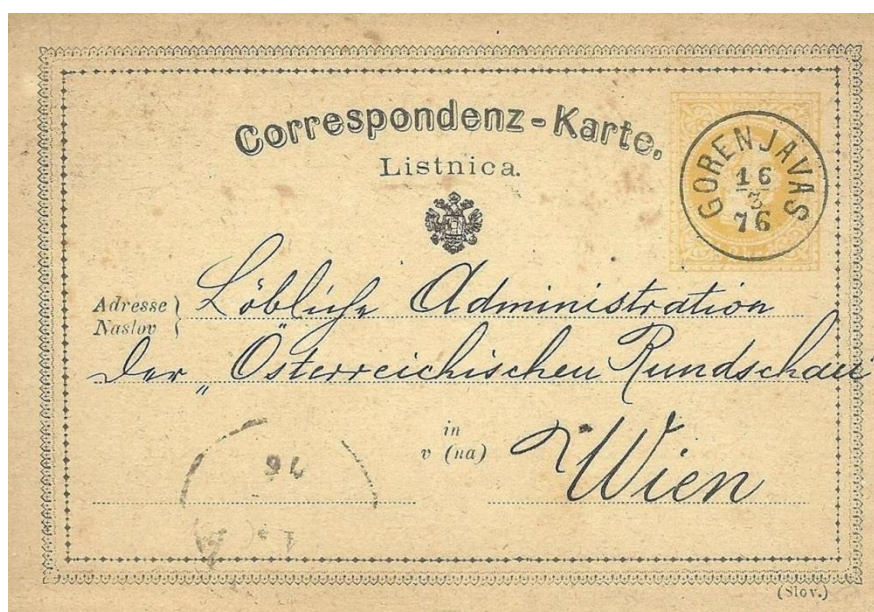 Correspondenz-Karte.
Listnica.
GORENJAVAS
16
3
76
Adresse
Naslov
Löbliche Administration
der „Österreichischen Rundschau“
in
v (na)
Wien
76
(Slov.)